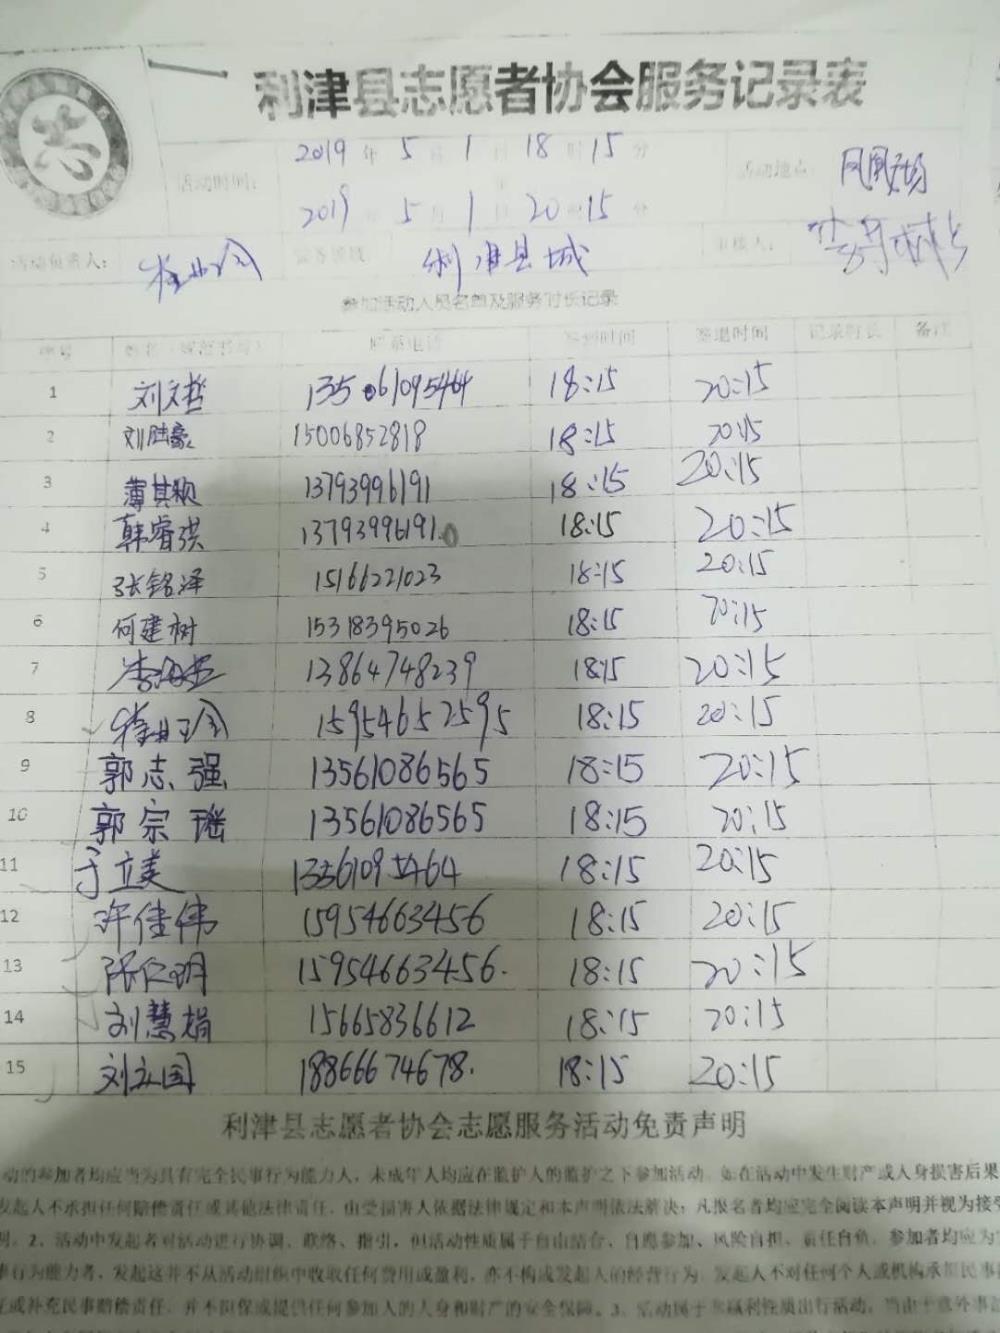 志
利津县志愿者协会服务记录表
活动时间: 2019 年 5 月 1 日 18 时 15 分 活动地点
2019 年 5 月 1 日 20 时 15 分 凤凰
活动负责人: 利津县城 审核人:
参加活动人员名单及服务时长记录
序号 联系电话 签到时间 签退时间 记录时长 备注
1 刘文哲 135 61095464 18:15 20:15
2 刘陆豪 15006852818 18:15 20:15
3 薄其顺 13793996191 18:15 20:15
4 韩睿洪 13793996191 18:15 20:15
5 张铭泽 15166221023 18:15 20:15
6 何建树 15318395026 18:15 20:15
7 13864748239 18:15 20:15
8 15954652595 18:15 20:15
9 郭志强 13561086565 18:15 20:15
10 郭宗瑶 13561086565 18:15 20:15
11 于立美 13561095464 18:15 20:15
12 许佳伟 15954663456 18:15 20:15
13 张仁明 15954663456. 18:15 20:15
14 刘慧娟 15665836612 18:15 20:15
15 刘立国 18866674678. 18:15 20:15
利津县志愿者协会志愿服务活动免责声明
动的参加者均应当为具有完全民事行为能力人，未成年人均应在监护人的监护之下参加活动。如在活动中发生财产或人身损害后果
发起人不承担任何赔偿责任或其他法律责任，由受损害人依据法律规定和本声明依法解决；凡报名者均应完全阅读本声明并视为接受
明。2、活动中发起者对活动进行协调、联络、指引，但活动性质属于自由结合、自愿参加、风险自担、责任自负。参加者均应为
事行为能力者，发起这并不从活动组织中收取任何费用或盈利，亦不构成发起人的经营行为。发起人不对任何个人或机构承担民事
任或补充民事赔偿责任，并不担保或提供任何参加人的人身和财产的安全保障。3、活动属于非赢利性质出行活动，当由于意外事